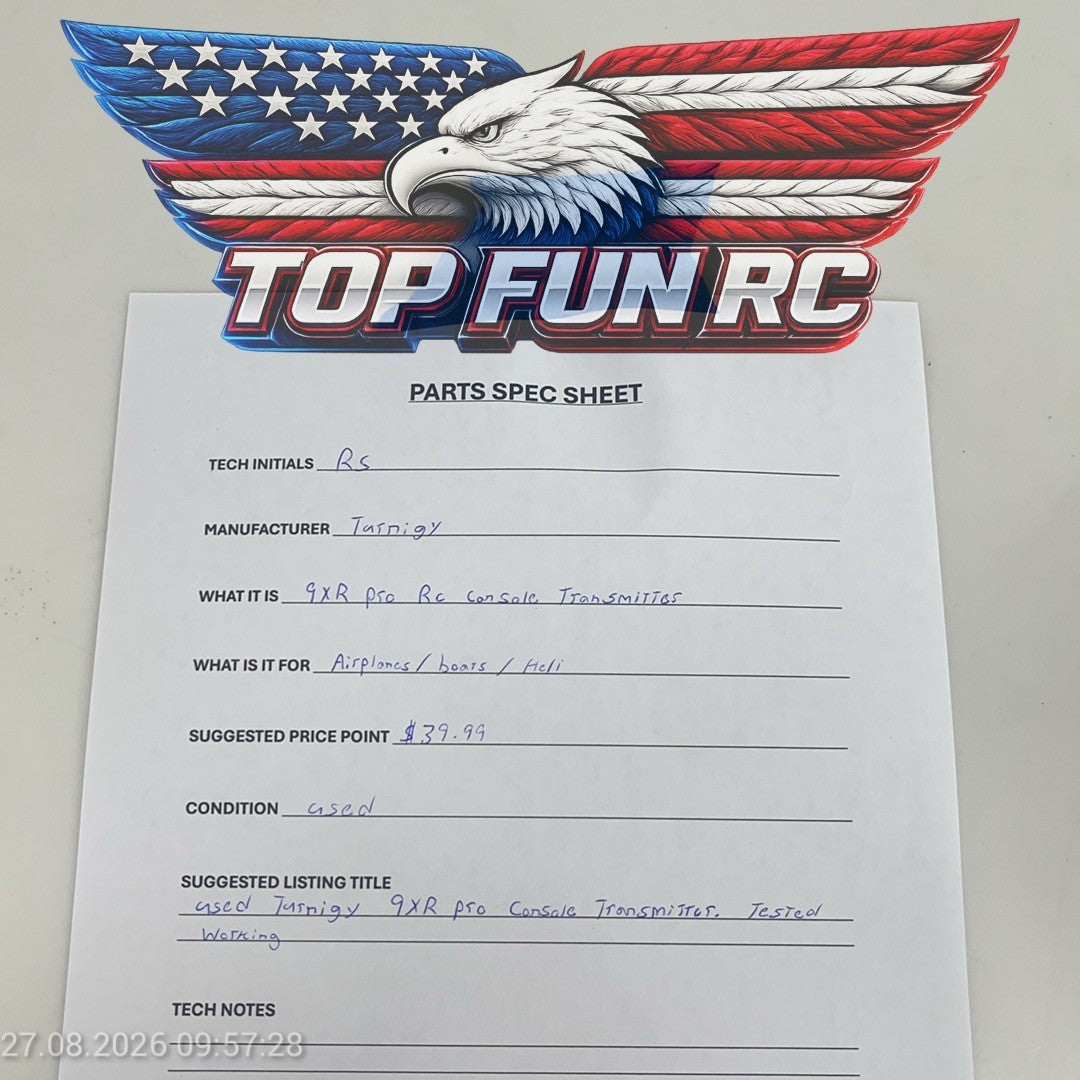 TOP FUN RC
PARTS SPEC SHEET
TECH INITIALS RS
MANUFACTURER Turnigy
WHAT IT IS 9XR pro Rc Console Transmitter
WHAT IS IT FOR Airplanes / boats / Heli
SUGGESTED PRICE POINT $39.99
CONDITION used
SUGGESTED LISTING TITLE
used Turnigy 9XR pro Console Transmitter. Tested
Working
TECH NOTES
27.08.2026 09:57:28